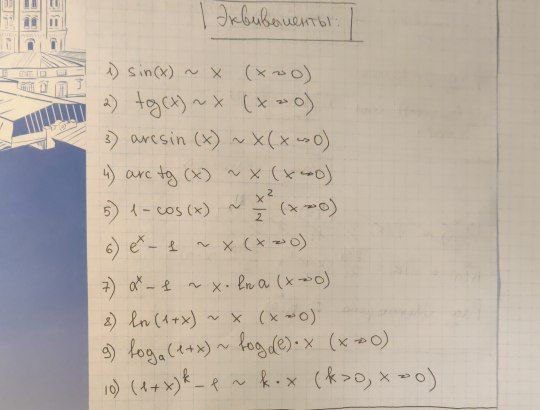 Эквиваленты:
1) sin(x) ~ x (x→0)
2) tg(x) ~ x (x→0)
3) arcsin (x) ~ x (x→0)
4) arctg (x) ~ x (x→0)
5) 1 - cos(x) ~ x²/2 (x→0)
6) eˣ - 1 ~ x (x→0)
7) aˣ - 1 ~ x · ln a (x→0)
8) ln(1+x) ~ x (x→0)
9) logₐ(1+x) ~ logₐ(e) · x (x→0)
10) (1+x)ᵏ - 1 ~ k · x (k>0, x→0)